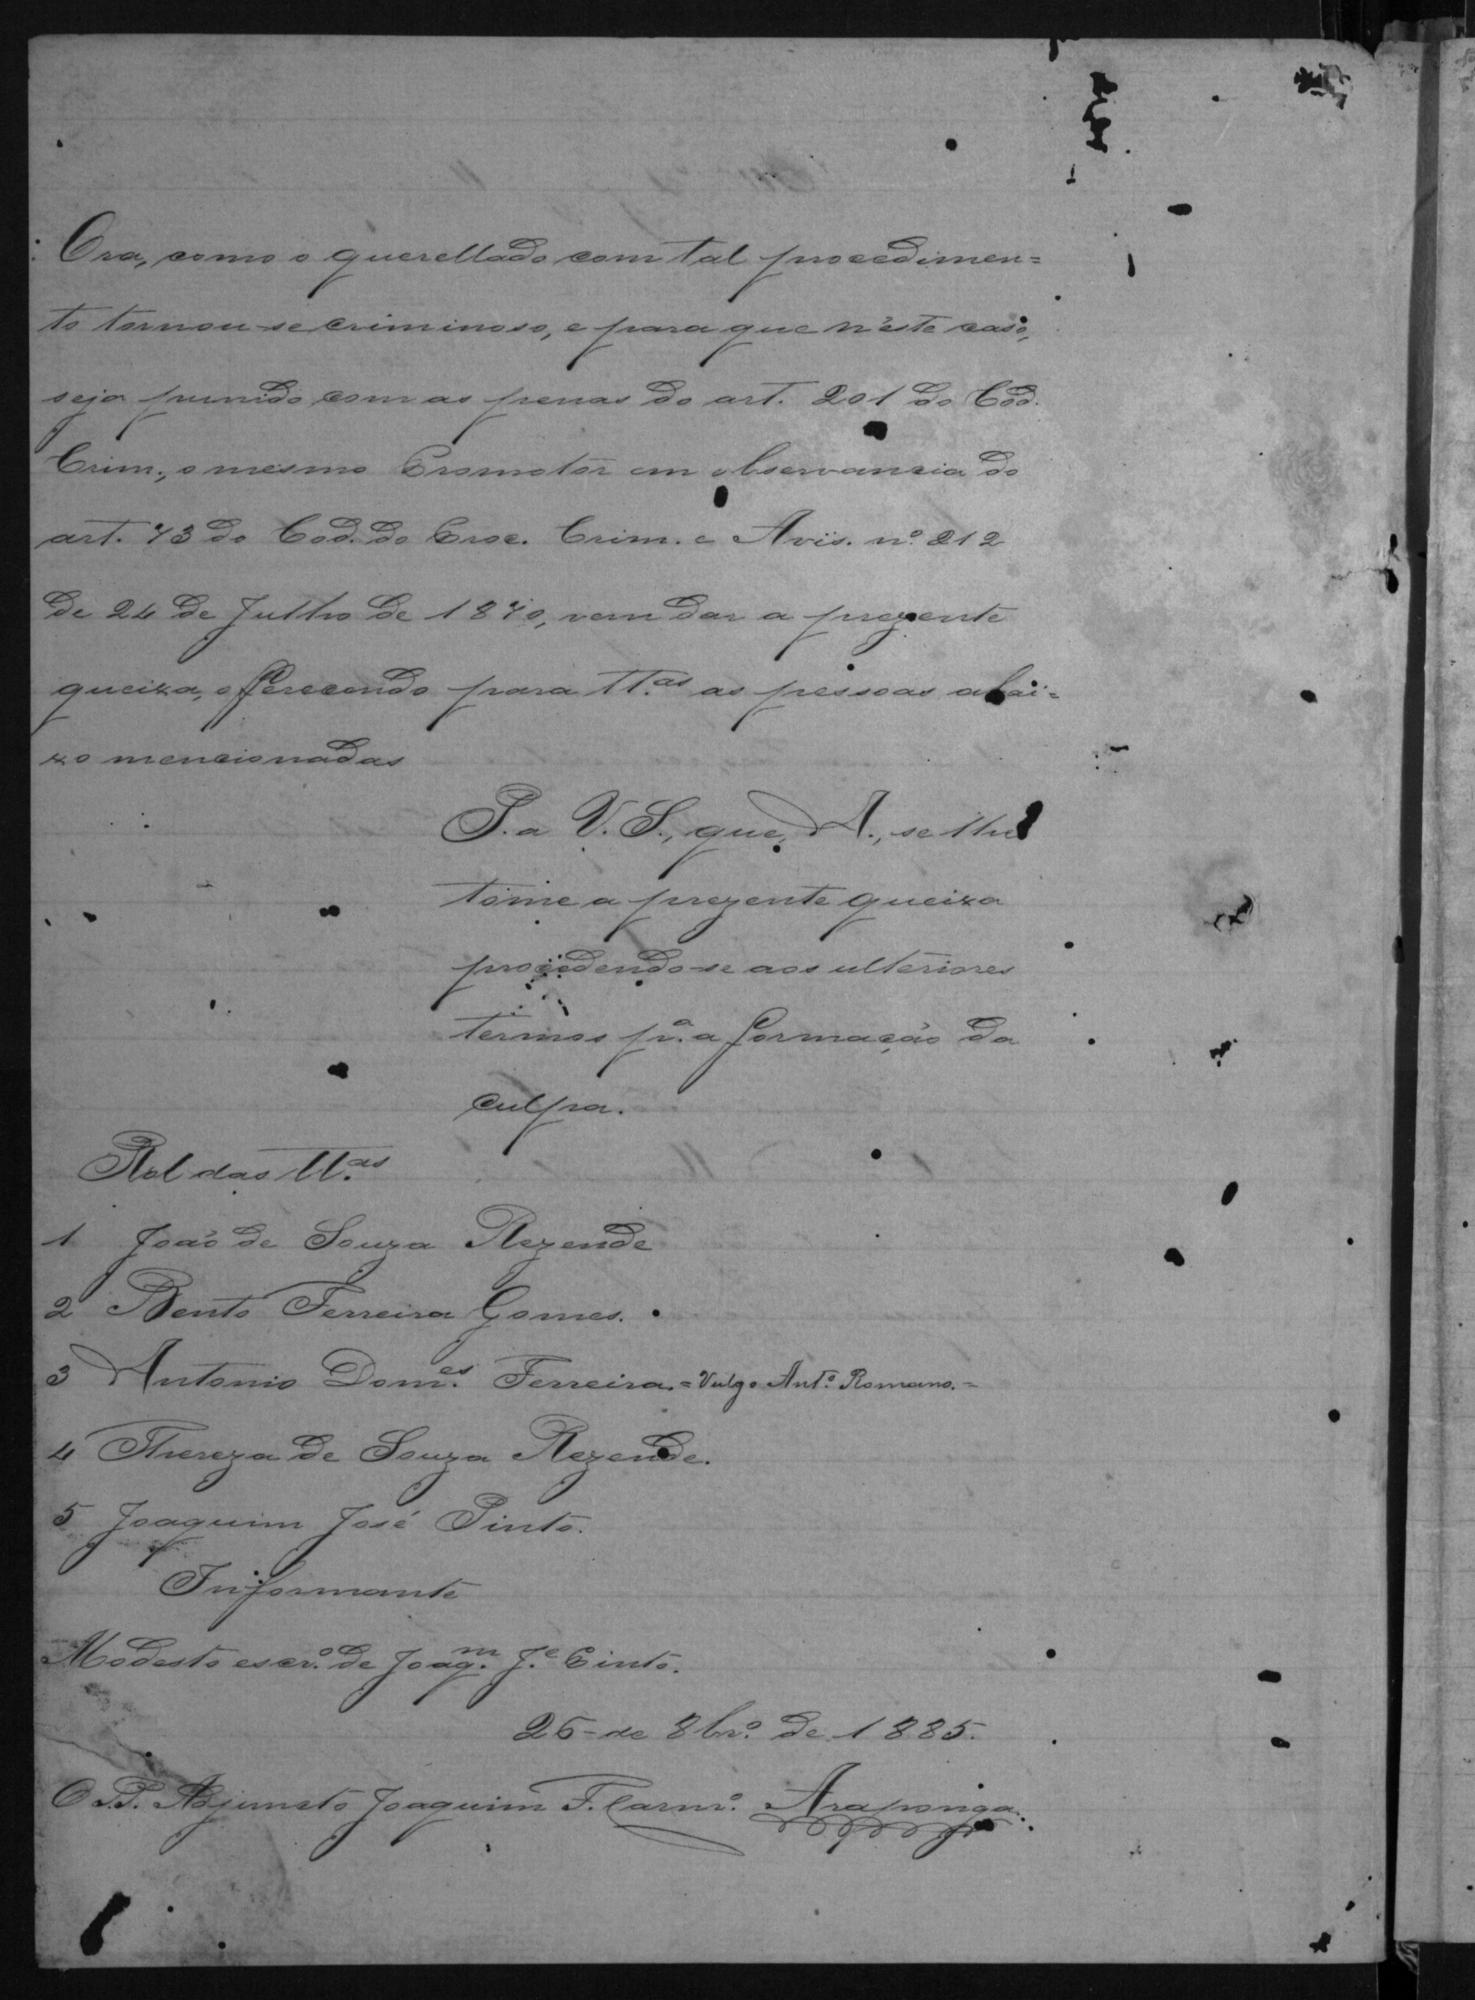 Ora, como o querellado com tal procedimen=
to tornou-se criminoso, e para que n'este caso,
seja punido com as penas do art. 201 do Cod.
Crim., o mesmo Promotor em observancia do
art. 73 do Cod. do Proc. Crim. e Avis. nº 212
de 24 de Julho de 1870, vem dar a prezente
queixa, offerecendo para ttas as pessoas abai=
xo mencionadas
P. a V. S., que, A., se lhe
tome a prezente queixa
procedendo-se aos ulteriores
termos pr.a a formação da
culpa.
Rol das tt.as
1 João de Souza Rezende
2 Bento Ferreira Gomes.
3 Antonio Dom.es Ferreira = Vulgo Ant.o Romano. =
4 Thereza de Souza Rezende.
5 Joaquim José Pinto.
Informante
Modesto escr.o de Joaq.m J.e Pinto.
26 de 8br.o de 1885.
O P. P. Adjuncto Joaquim F. Carnr.o Araponga